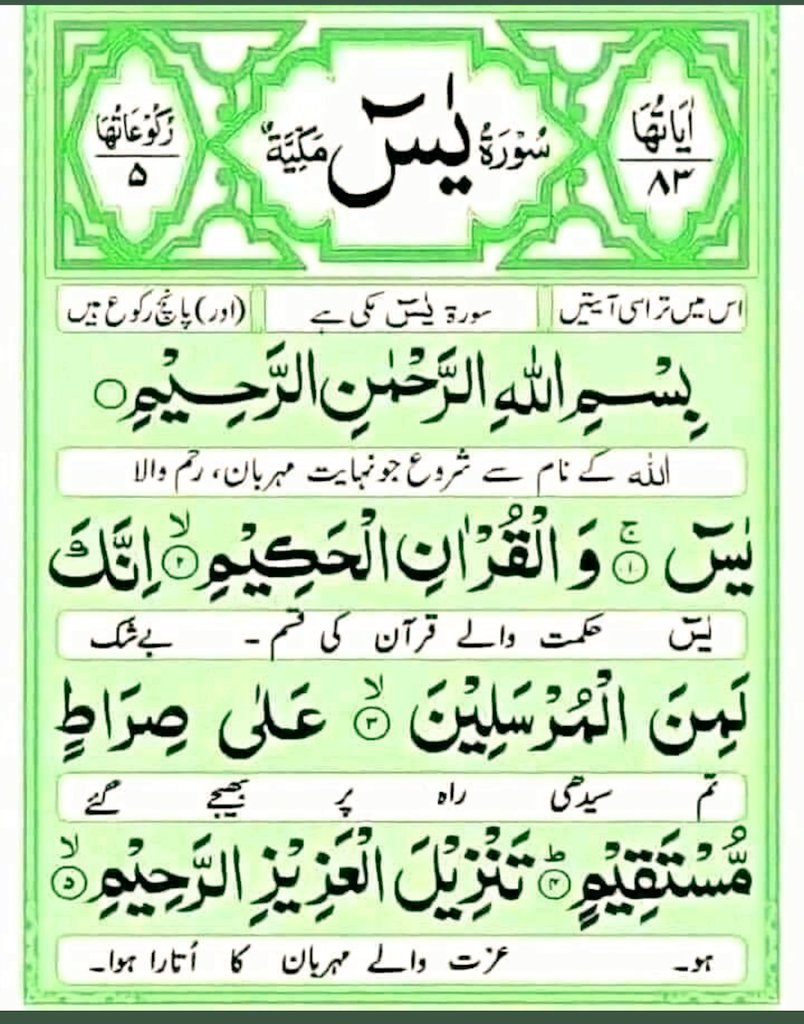 اٰيَاتُهَا ٨٣
سُوْرَةُ يٰسٓ مَكِّيَّةٌ
رُكُوْعَاتُهَا ٥
اس میں تراسی آیتیں
سورۃ یٰسٓ مکی ہے
(اور) پانچ رکوع ہیں
بِسْمِ اللّٰهِ الرَّحْمٰنِ الرَّحِيْمِ
اللّٰہ کے نام سے شروع جو نہایت مہربان، رحم والا
يٰسٓ ۚ ﴿١﴾ وَ الْقُرْاٰنِ الْحَكِيْمِ ۙ ﴿٢﴾ اِنَّكَ
یٰسٓ حکمت والے قرآن کی قسم ۔ بےشک
لَمِنَ الْمُرْسَلِيْنَ ۙ ﴿٣﴾ عَلٰى صِرَاطٍ
تم سیدھی راہ پر بھیجے گئے
مُّسْتَقِيْمٍ ؕ ﴿٤﴾ تَنْزِيْلَ الْعَزِيْزِ الرَّحِيْمِ ۙ ﴿٥﴾
ہو۔ عزت والے مہربان کا اُتارا ہوا۔